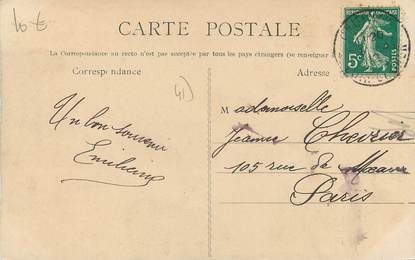 10 €
CARTE POSTALE
La Correspondance au recto n'est pas acceptée par tous les pays étrangers (se renseigner
Correspondance
Adresse
5c
POSTES
41)
Un bon souvenir
Mademoiselle
Jeanne Chevrier
105 rue de
Paris